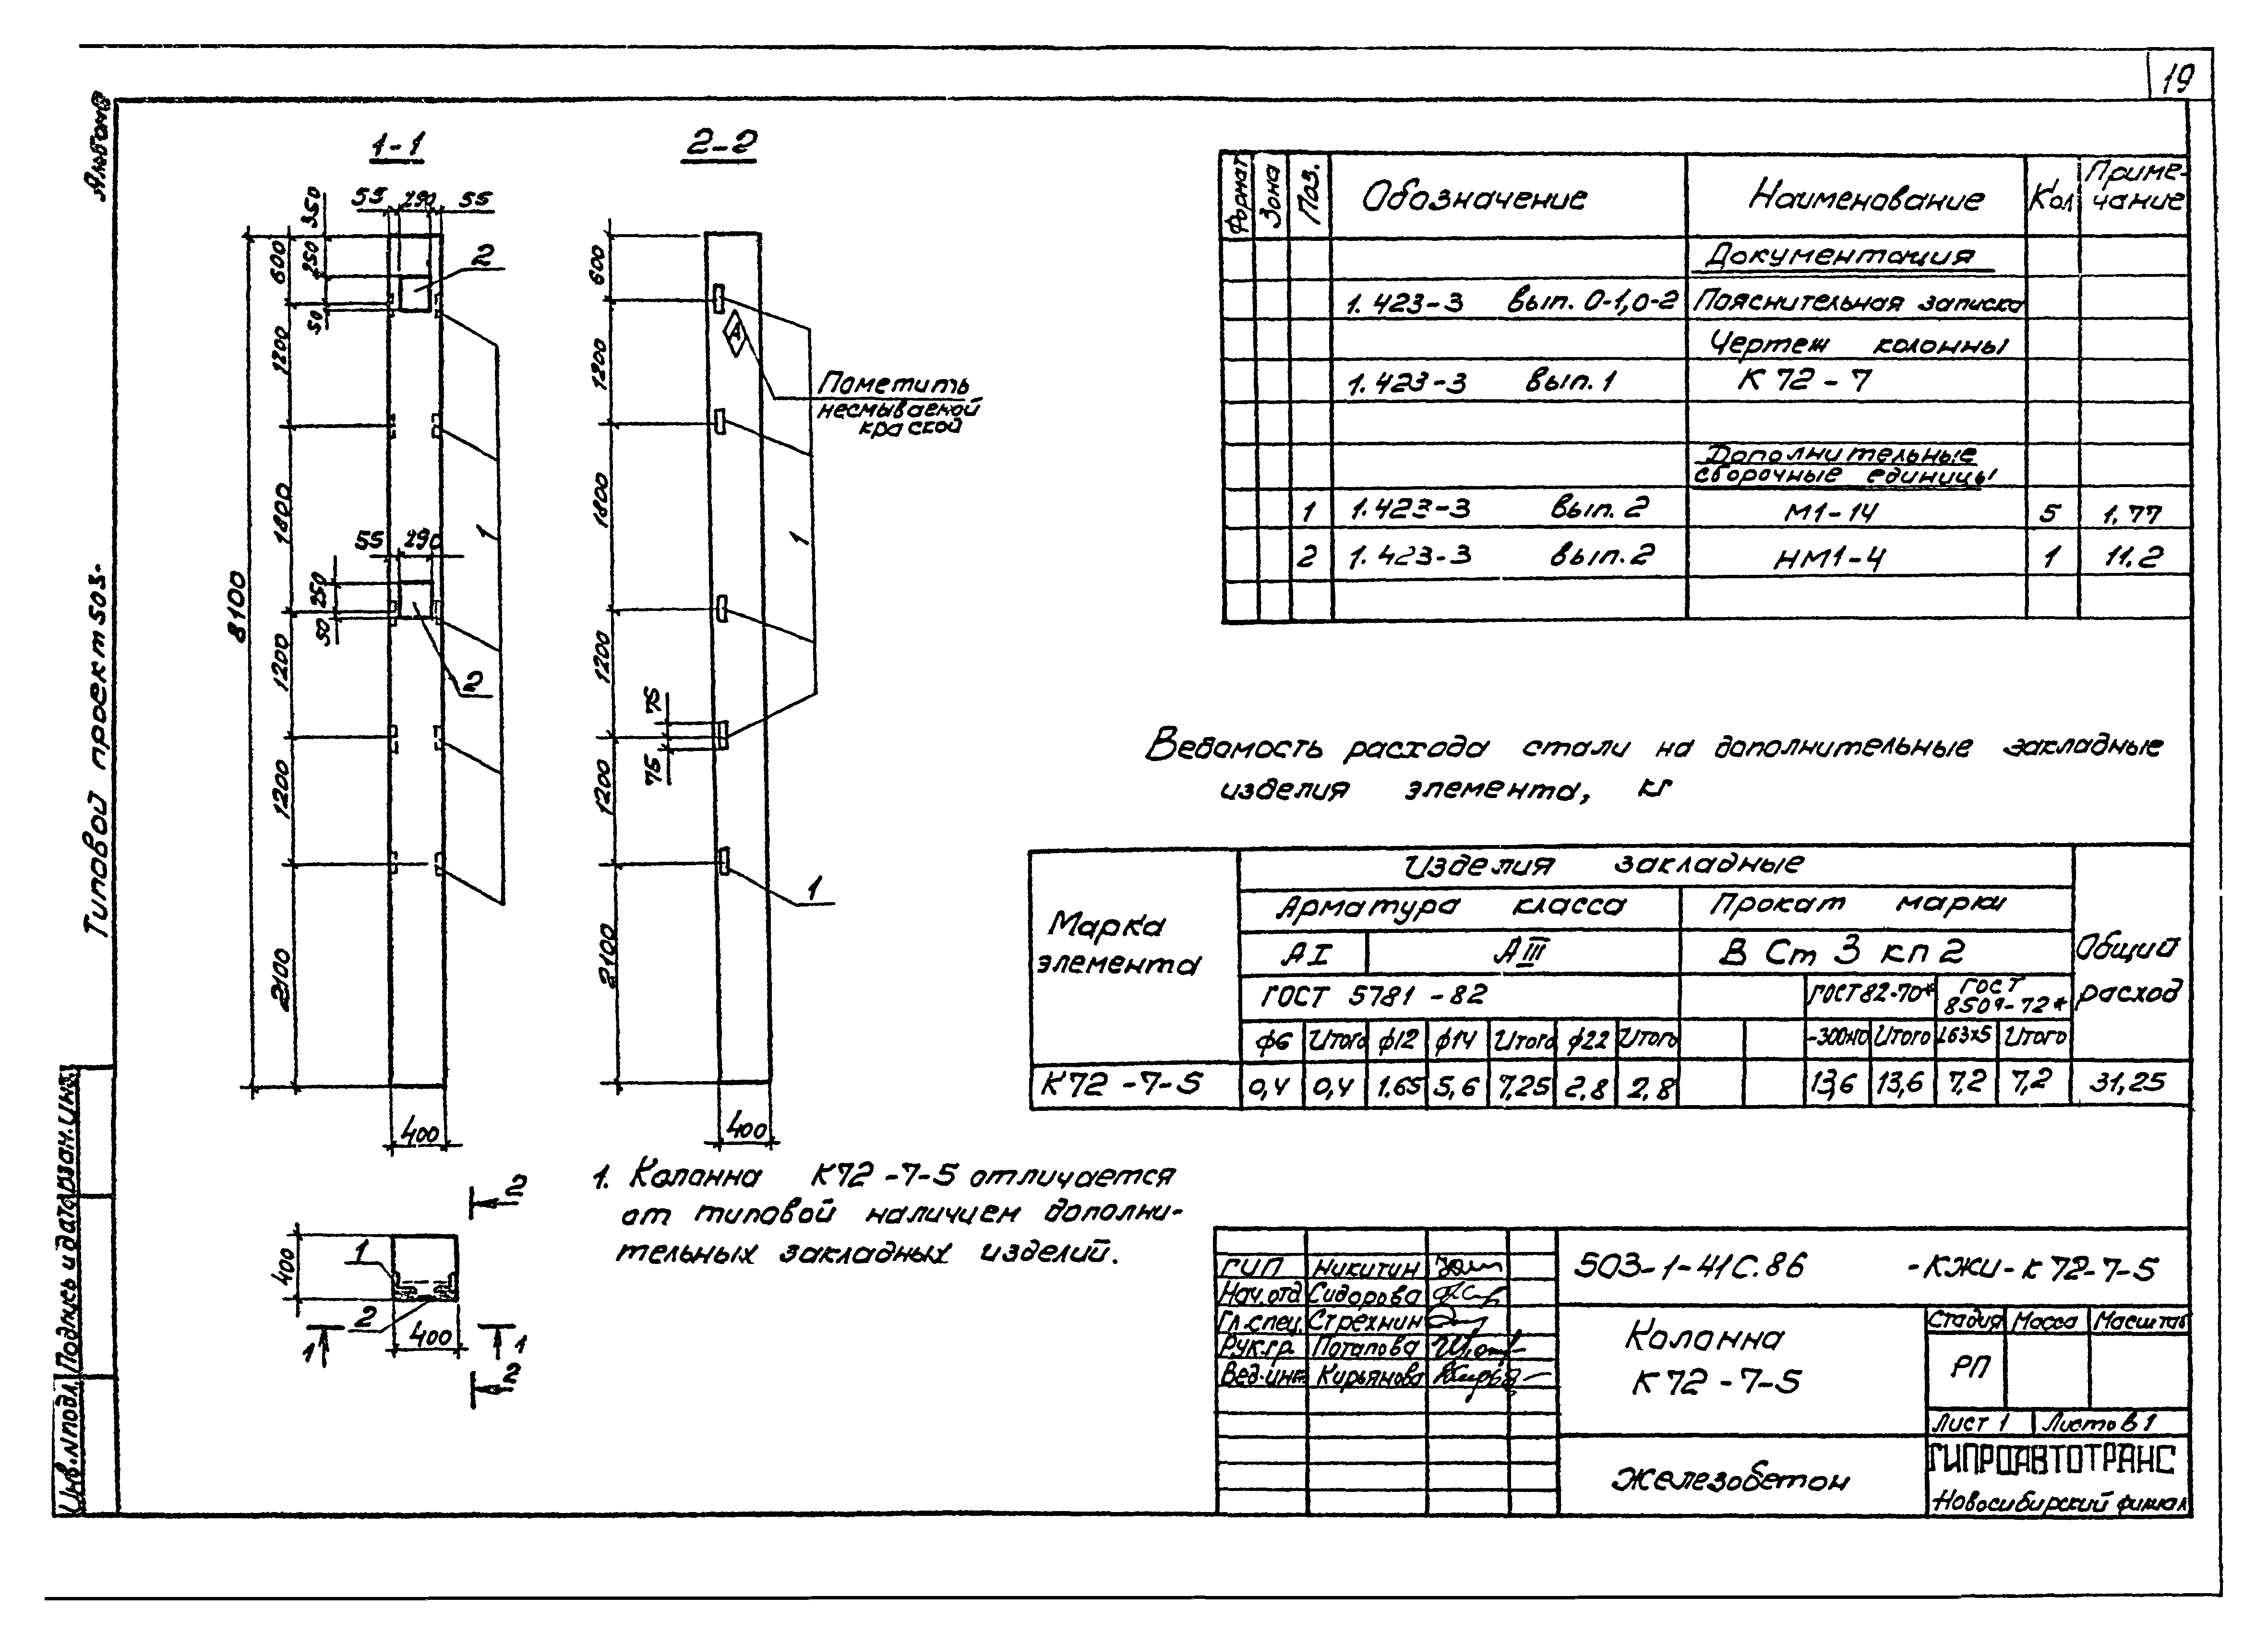 19
Альбом
Типовой проект 503-
1-1
2-2
55 290 55
350
250
50
600
1200
1800
1200
1200
2100
8100
2
1
55 290
250
50
2
400
600
1200
1800
1200
1200
2100
75
75
А
Пометить
несмываемой
краской
1
1
400
400
1
2
400
1 1
2
2
1. Колонна К72-7-5 отличается
от типовой наличием дополни-
тельных закладных изделий.
Формат Зона Поз. Обозначение Наименование Кол Приме-
чание
Документация
1.423-3 вып. 0-1,0-2 Пояснительная записка
Чертеж колонны
1.423-3 вып.1 К 72-7
Дополнительные
сборочные единицы
1 1.423-3 вып. 2 М1-14 5 1.77
2 1.423-3 вып.2 НМ1-4 1 11.2
Ведомость расхода стали на дополнительные закладные
изделия элемента, кг
Марка
элемента
Изделия закладные
Общий
расход
Арматура класса Прокат марки
АI АIII В Ст 3 кп 2
ГОСТ 5781-82 ГОСТ 82-70* ГОСТ
8509-72*
ф6 Итого ф12 ф14 Итого ф22 Итого -300х10 Итого L63х5 Итого
К72-7-5 0,4 0,4 1.65 5,6 7,25 2.8 2.8 13,6 13,6 7,2 7,2 31,25
ГИП Никитин
Нач.отд Сидорова
Гл.спец. Стрехнин
Рук.гр. Потапова
Вед.инж. Кирьянова
503-1-41С.86 -КЖИ-К72-7-5
Колонна
К72-7-5
Стадия Масса Масштаб
РП
Лист 1 Листов 1
Железобетон
ГИПРОАВТОТРАНС
Новосибирский филиал
Инв.N подл. Подпись и дата Взам.инв.